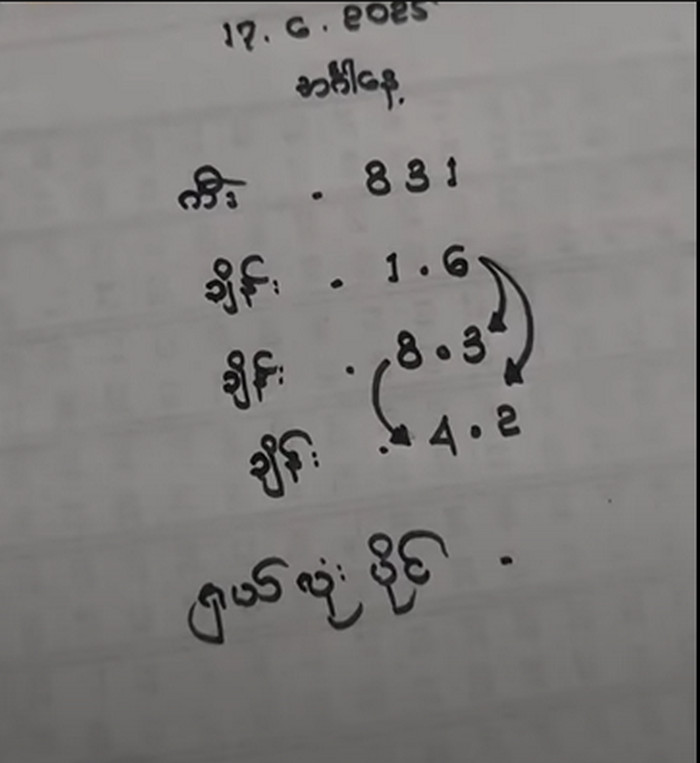 17. 6. 2025
အင်္ဂါနေ့
ကီး . 831
ချိန်း . 1.6
ချိန်း . 8.3
ချိန်း . 4.2
ရှယ်လုံးပိုင် .